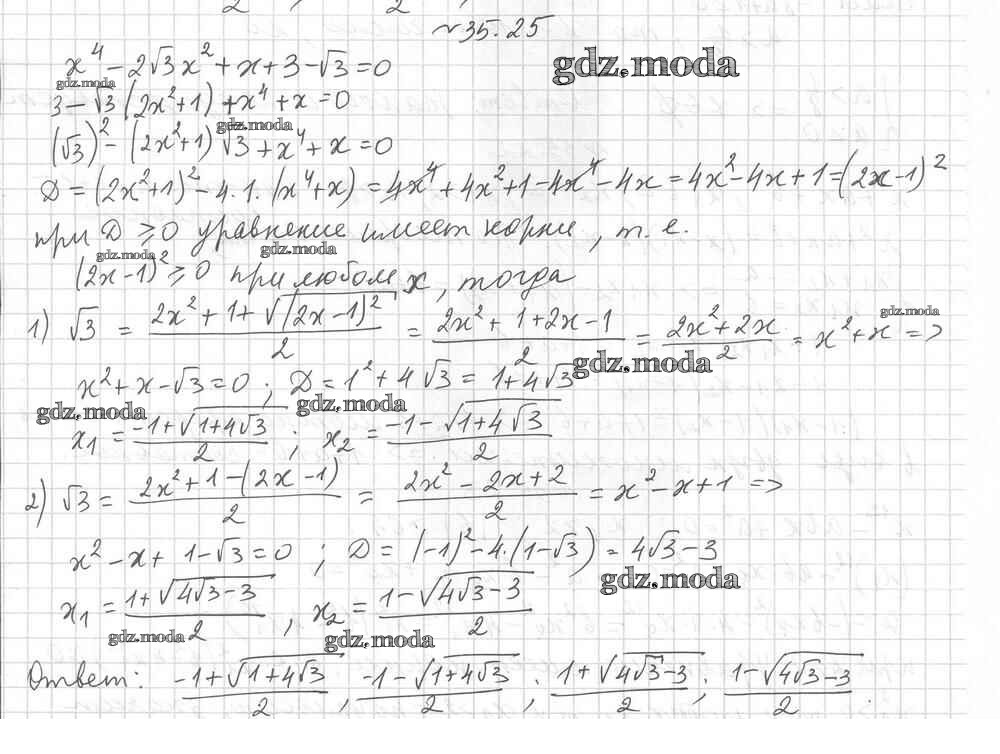 № 35.25
x⁴ − 2√3 x² + x + 3 − √3 = 0
gdz.moda
gdz.moda
3 − √3 (2x² + 1) + x⁴ + x = 0
gdz.moda
(√3)² − (2x² + 1) √3 + x⁴ + x = 0
D = (2x² + 1)² − 4 · 1 · (x⁴ + x) = 4x⁴ + 4x² + 1 − 4x⁴ − 4x = 4x² − 4x + 1 = (2x − 1)²
при D ≥ 0 уравнение имеет корни, т. е.
gdz.moda
gdz.moda
(2x − 1)² ≥ 0 при любом x, тогда
gdz.moda
1) √3 = (2x² + 1 + √(2x − 1)²) / 2 = (2x² + 1 + 2x − 1) / 2 = (2x² + 2x) / 2 = x² + x =>
gdz.moda
x² + x − √3 = 0 ; D = 1² + 4√3 = 1 + 4√3
gdz.moda
gdz.moda
x₁ = (−1 + √(1 + 4√3)) / 2 ; x₂ = (−1 − √(1 + 4√3)) / 2
2) √3 = (2x² + 1 − (2x − 1)) / 2 = (2x² − 2x + 2) / 2 = x² − x + 1 =>
x² − x + 1 − √3 = 0 ; D = (−1)² − 4 · (1 − √3) = 4√3 − 3
gdz.moda
x₁ = (1 + √(4√3 − 3)) / 2 , x₂ = (1 − √(4√3 − 3)) / 2
gdz.moda
gdz.moda
Ответ: (−1 + √(1 + 4√3)) / 2 , (−1 − √(1 + 4√3)) / 2 ; (1 + √(4√3 − 3)) / 2 ; (1 − √(4√3 − 3)) / 2 .